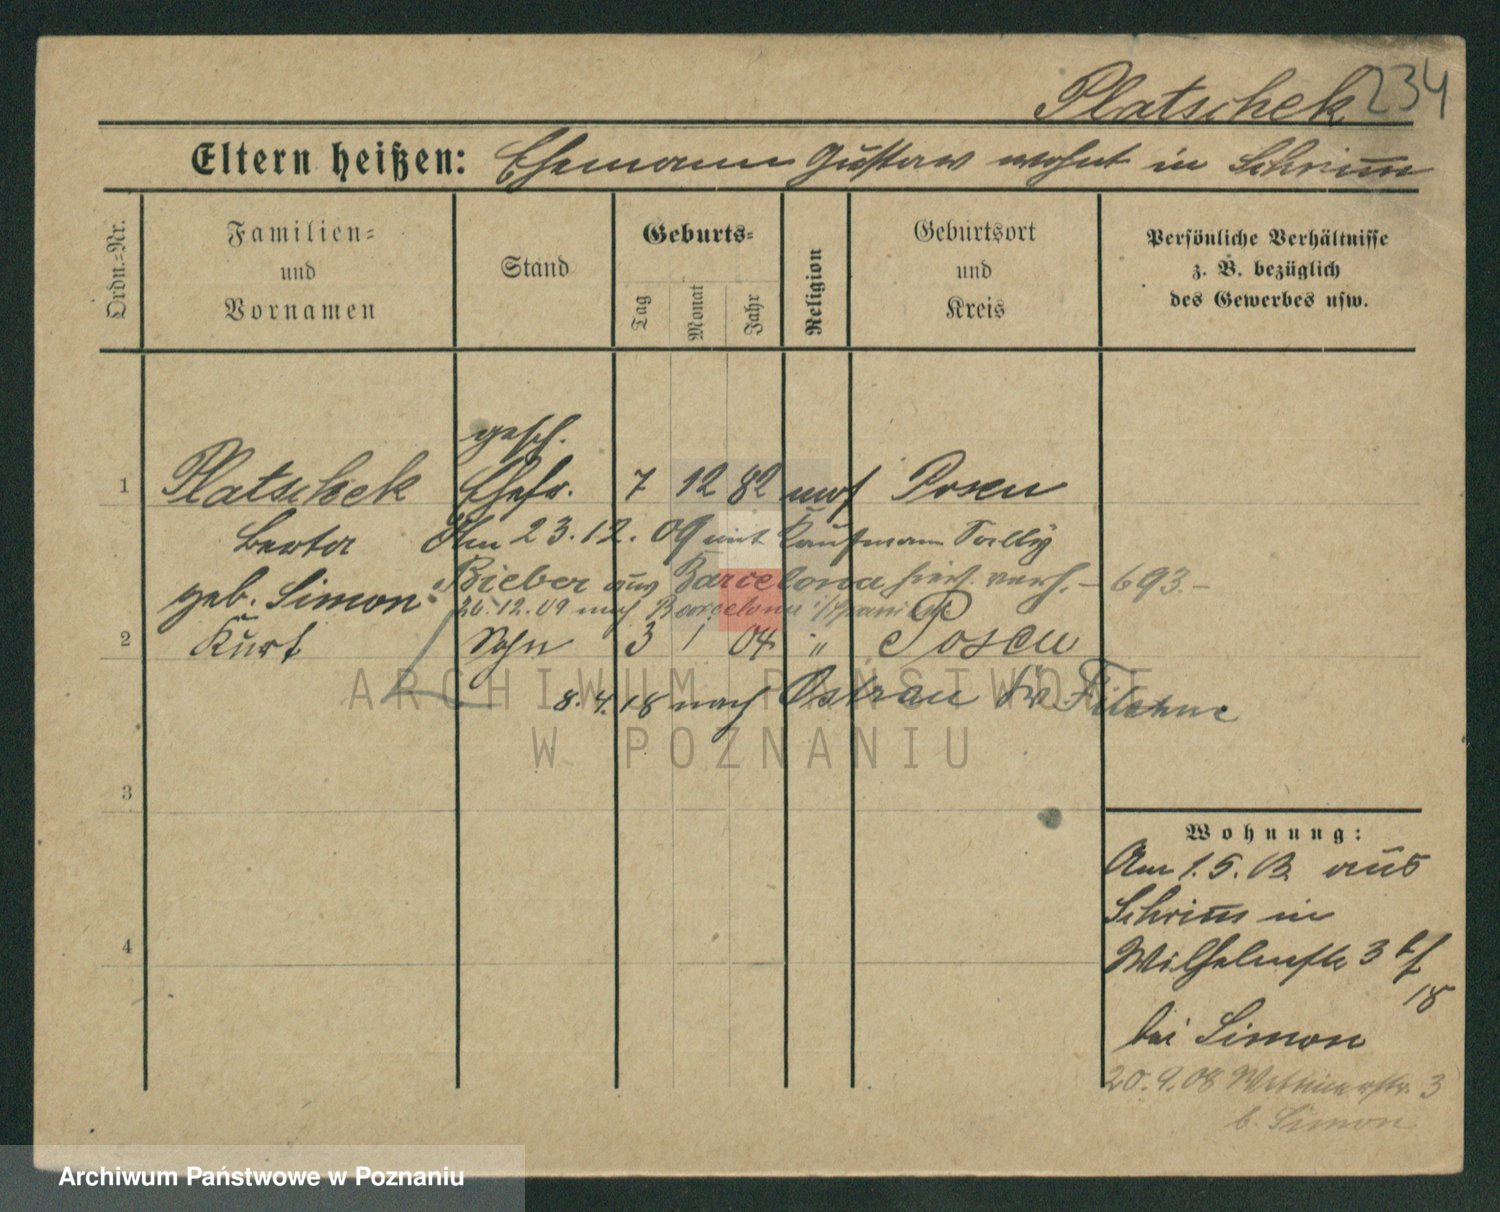 Platschek 234
Eltern heißen: Ehemann Gustav wohnt in Schrimm
Ordn.-Nr.
Familien-
und
Vornamen
Stand
Geburts-
Tag
Monat
Jahr
Religion
Geburtsort
und
Kreis
Persönliche Verhältnisse
z. B. bezüglich
des Gewerbes usw.
gesch.
1 Platschek Ehefr. 7 12 82 mos Posen
Berta Am 23.12.09 mit Kaufmann Tally
Bieber aus Barcelona hier verh. – 693. –
geb. Simon
20.12.09 nach Barcelona
2 Kurt Sohn 3 1 04 " Posen
8.4.18 nach Ostrau Kr. Filehne
3
4
Wohnung:
Am 1.5.03. aus
Schrimm in
Wilhelmstr 3
18
bei Simon
20.9.08 3
b. Simon
ARCHIWUM PAŃSTWOWE
W POZNANIU
Archiwum Państwowe w Poznaniu